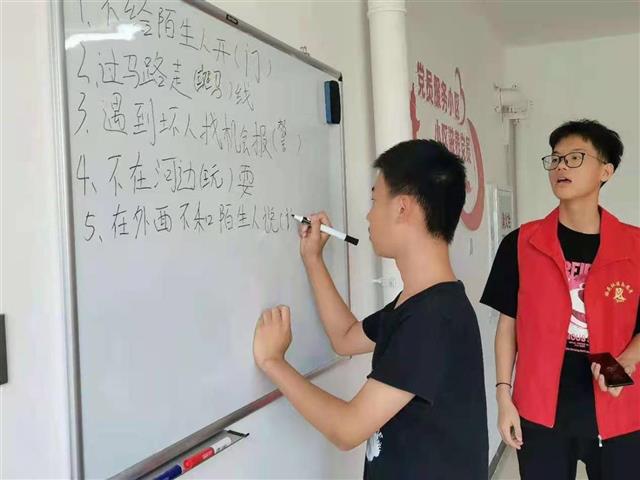 1、不给陌生人开(门)
2、过马路走(斑马)线
3、遇到坏人找机会报(警)
4、不在河边(玩)耍
5、在外面不和陌生人说(
党员服务小区